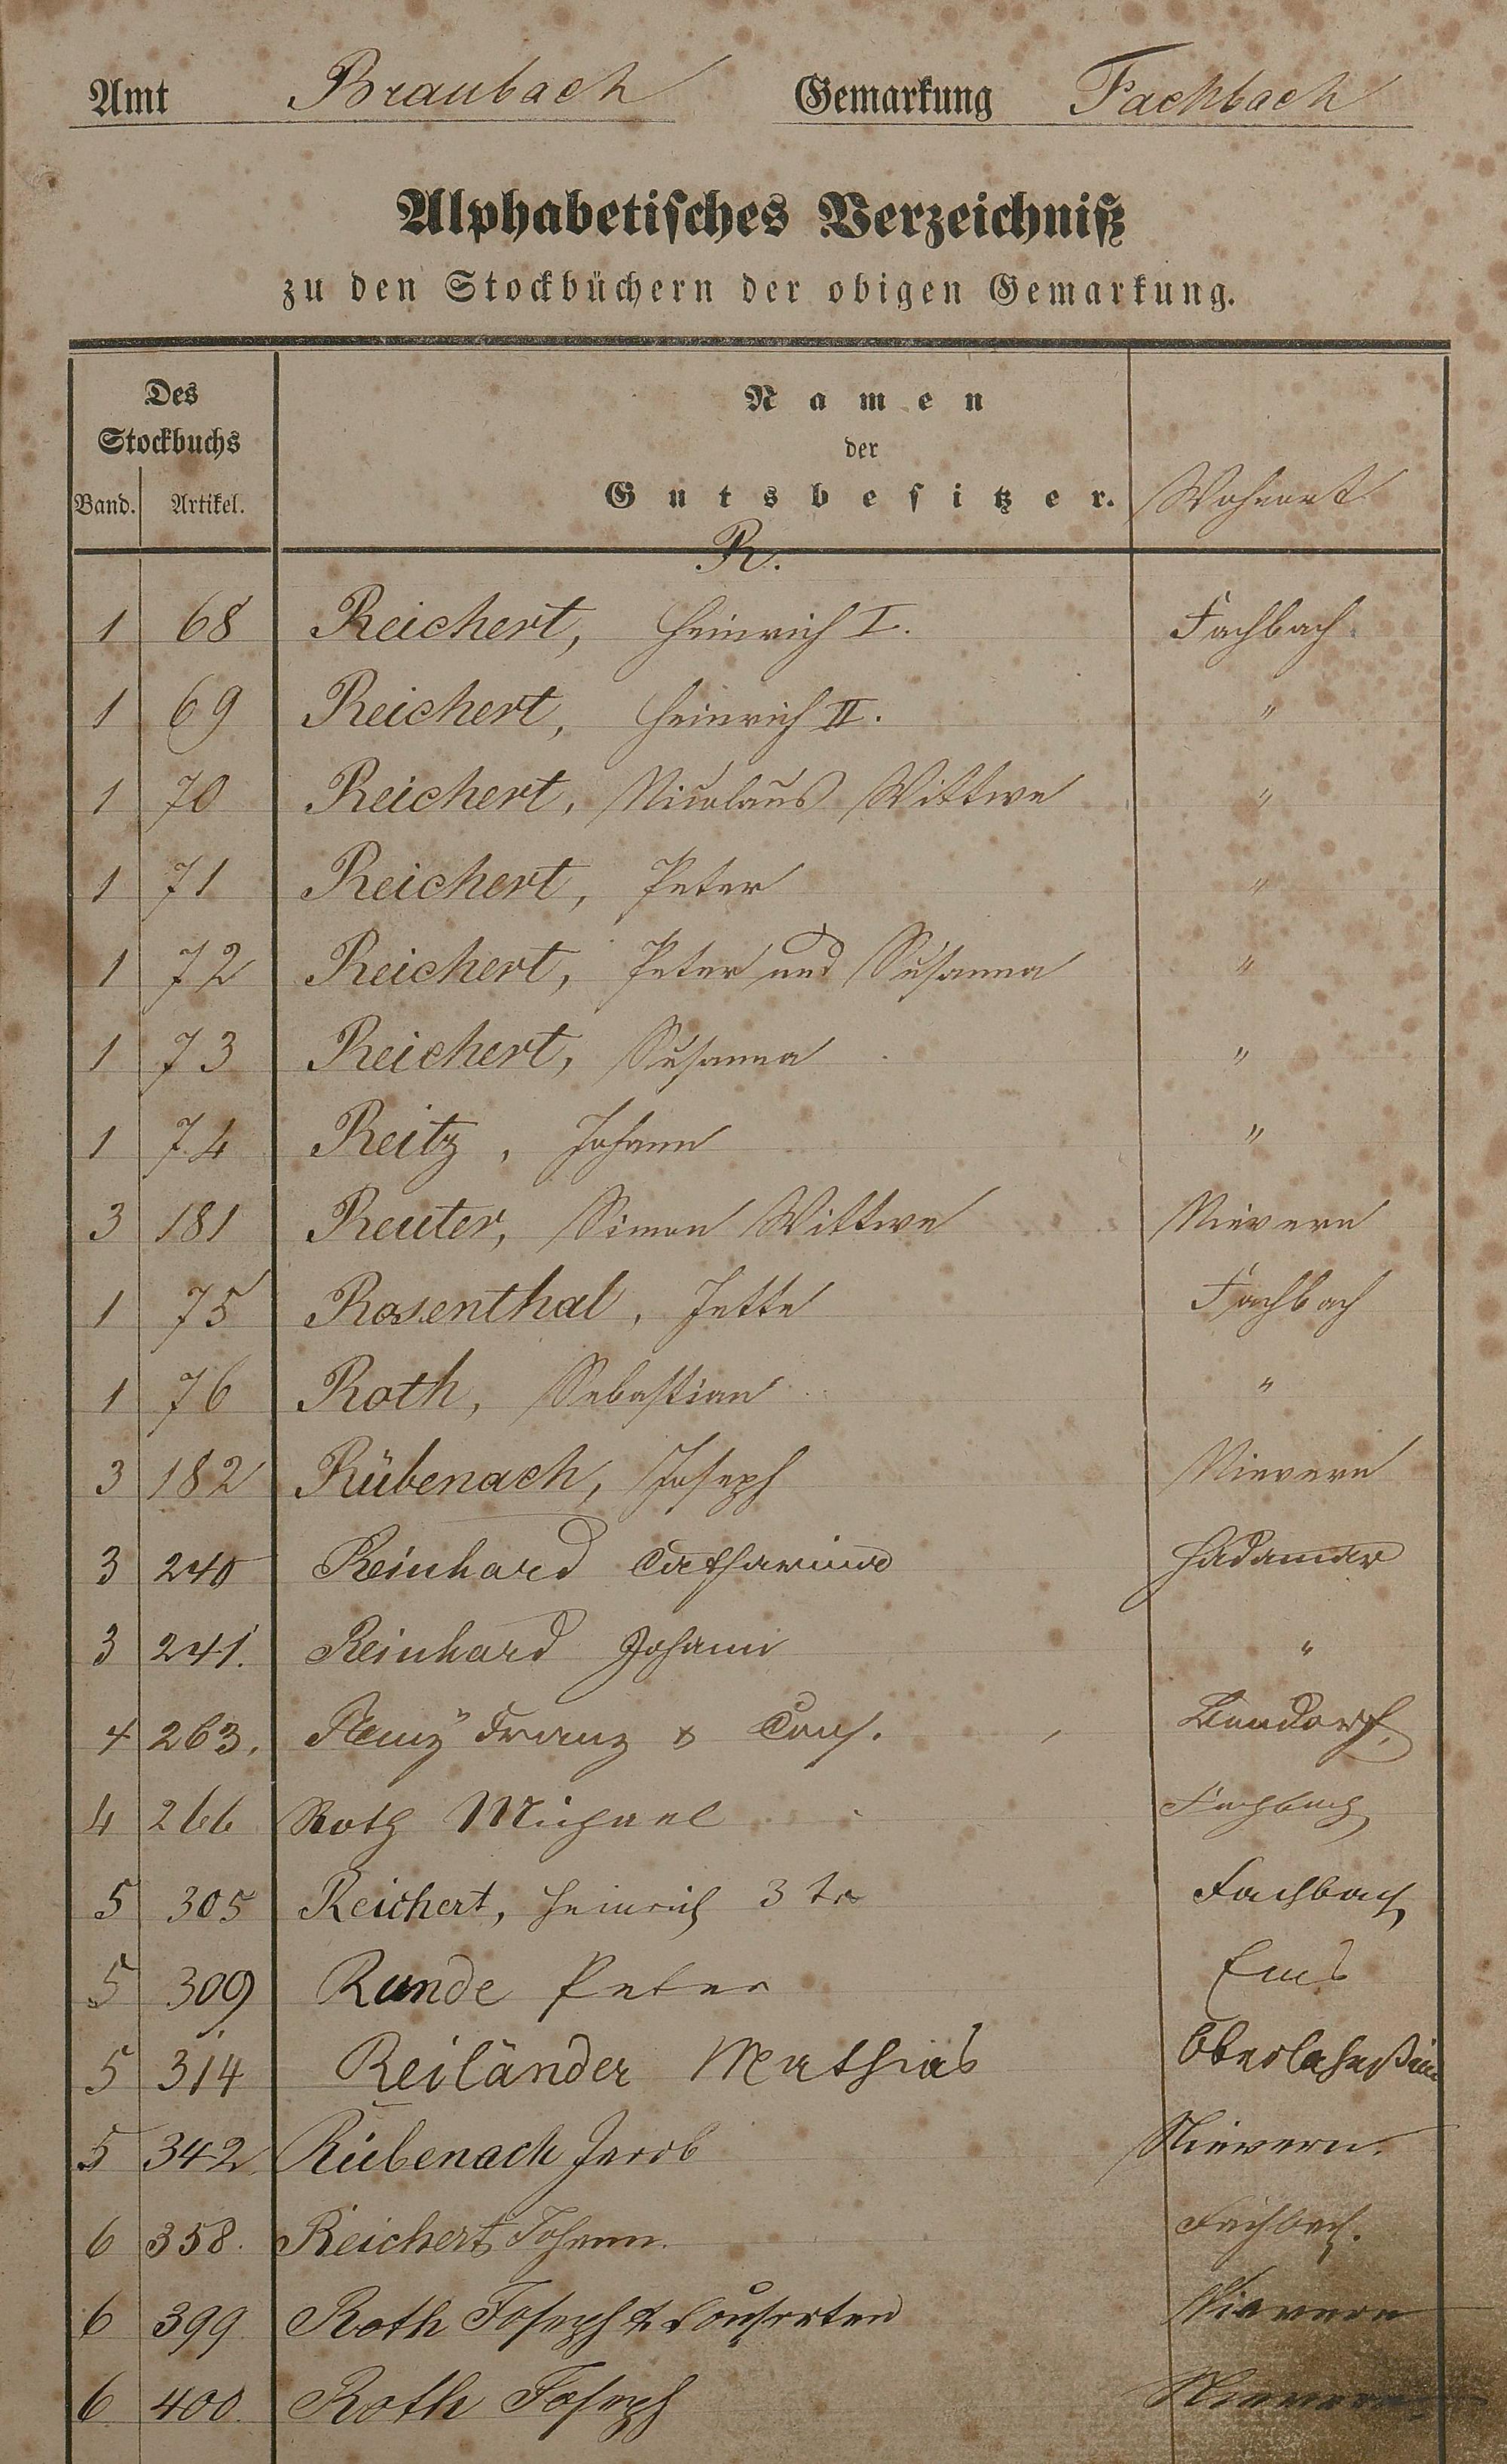 Amt Braubach Gemarkung Fachbach
Alphabetisches Verzeichniß
zu den Stockbüchern der obigen Gemarkung.
Des Stockbuchs
Band. Artikel.
Namen
der
Gutsbesitzer. Wohnort
R.
1 68 Reichert, Heinrich I. Fachbach
1 69 Reichert, Heinrich II. "
1 70 Reichert, Nicolaus Wittwe "
1 71 Reichert, Peter "
1 72 Reichert, Peter und Susanna "
1 73 Reichert, Susanna "
1 74 Reitz, Johann "
3 181 Reuter, Simon Wittwe Nievern
1 75 Rosenthal, Jette Fachbach
1 76 Roth, Sebastian "
3 182 Rübenach, Joseph Nievern
3 240 Reinhard Catharina Hadamar
3 241. Reinhard Johann "
4 263. Franz & Cons. Bendorf.
4 266 Roth Michael Fachbach
5 305 Reichert, Heinrich 3tr Fachbach
5 309 Runde Peter Ems
5 314 Reiländer Mathias Oberlahnstein
5 342. Rübenach Jacob Nievern.
6 358. Reichert Johann. Fachbach.
6 399 Roth Joseph & Consorten Nievern
6 400. Roth Joseph Nievern